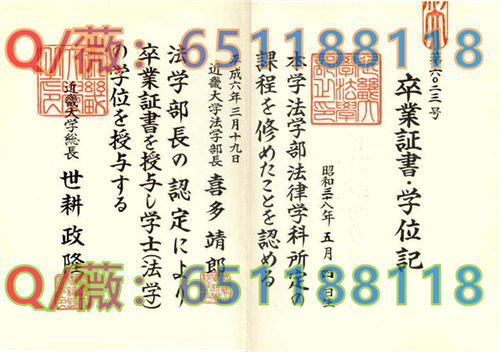 第六〇二三号
卒業証書・学位記
昭和三十八年五月
本学法学部法律学科所定の
課程を修めたことを認める
平成六年三月十九日
近畿大学法学部長 喜多靖郎
法学部長の認定により
卒業証書を授与し学士(法学)
の学位を授与する
近畿大学総長 世耕政隆
Q/薇：651188118
Q/薇：651188118